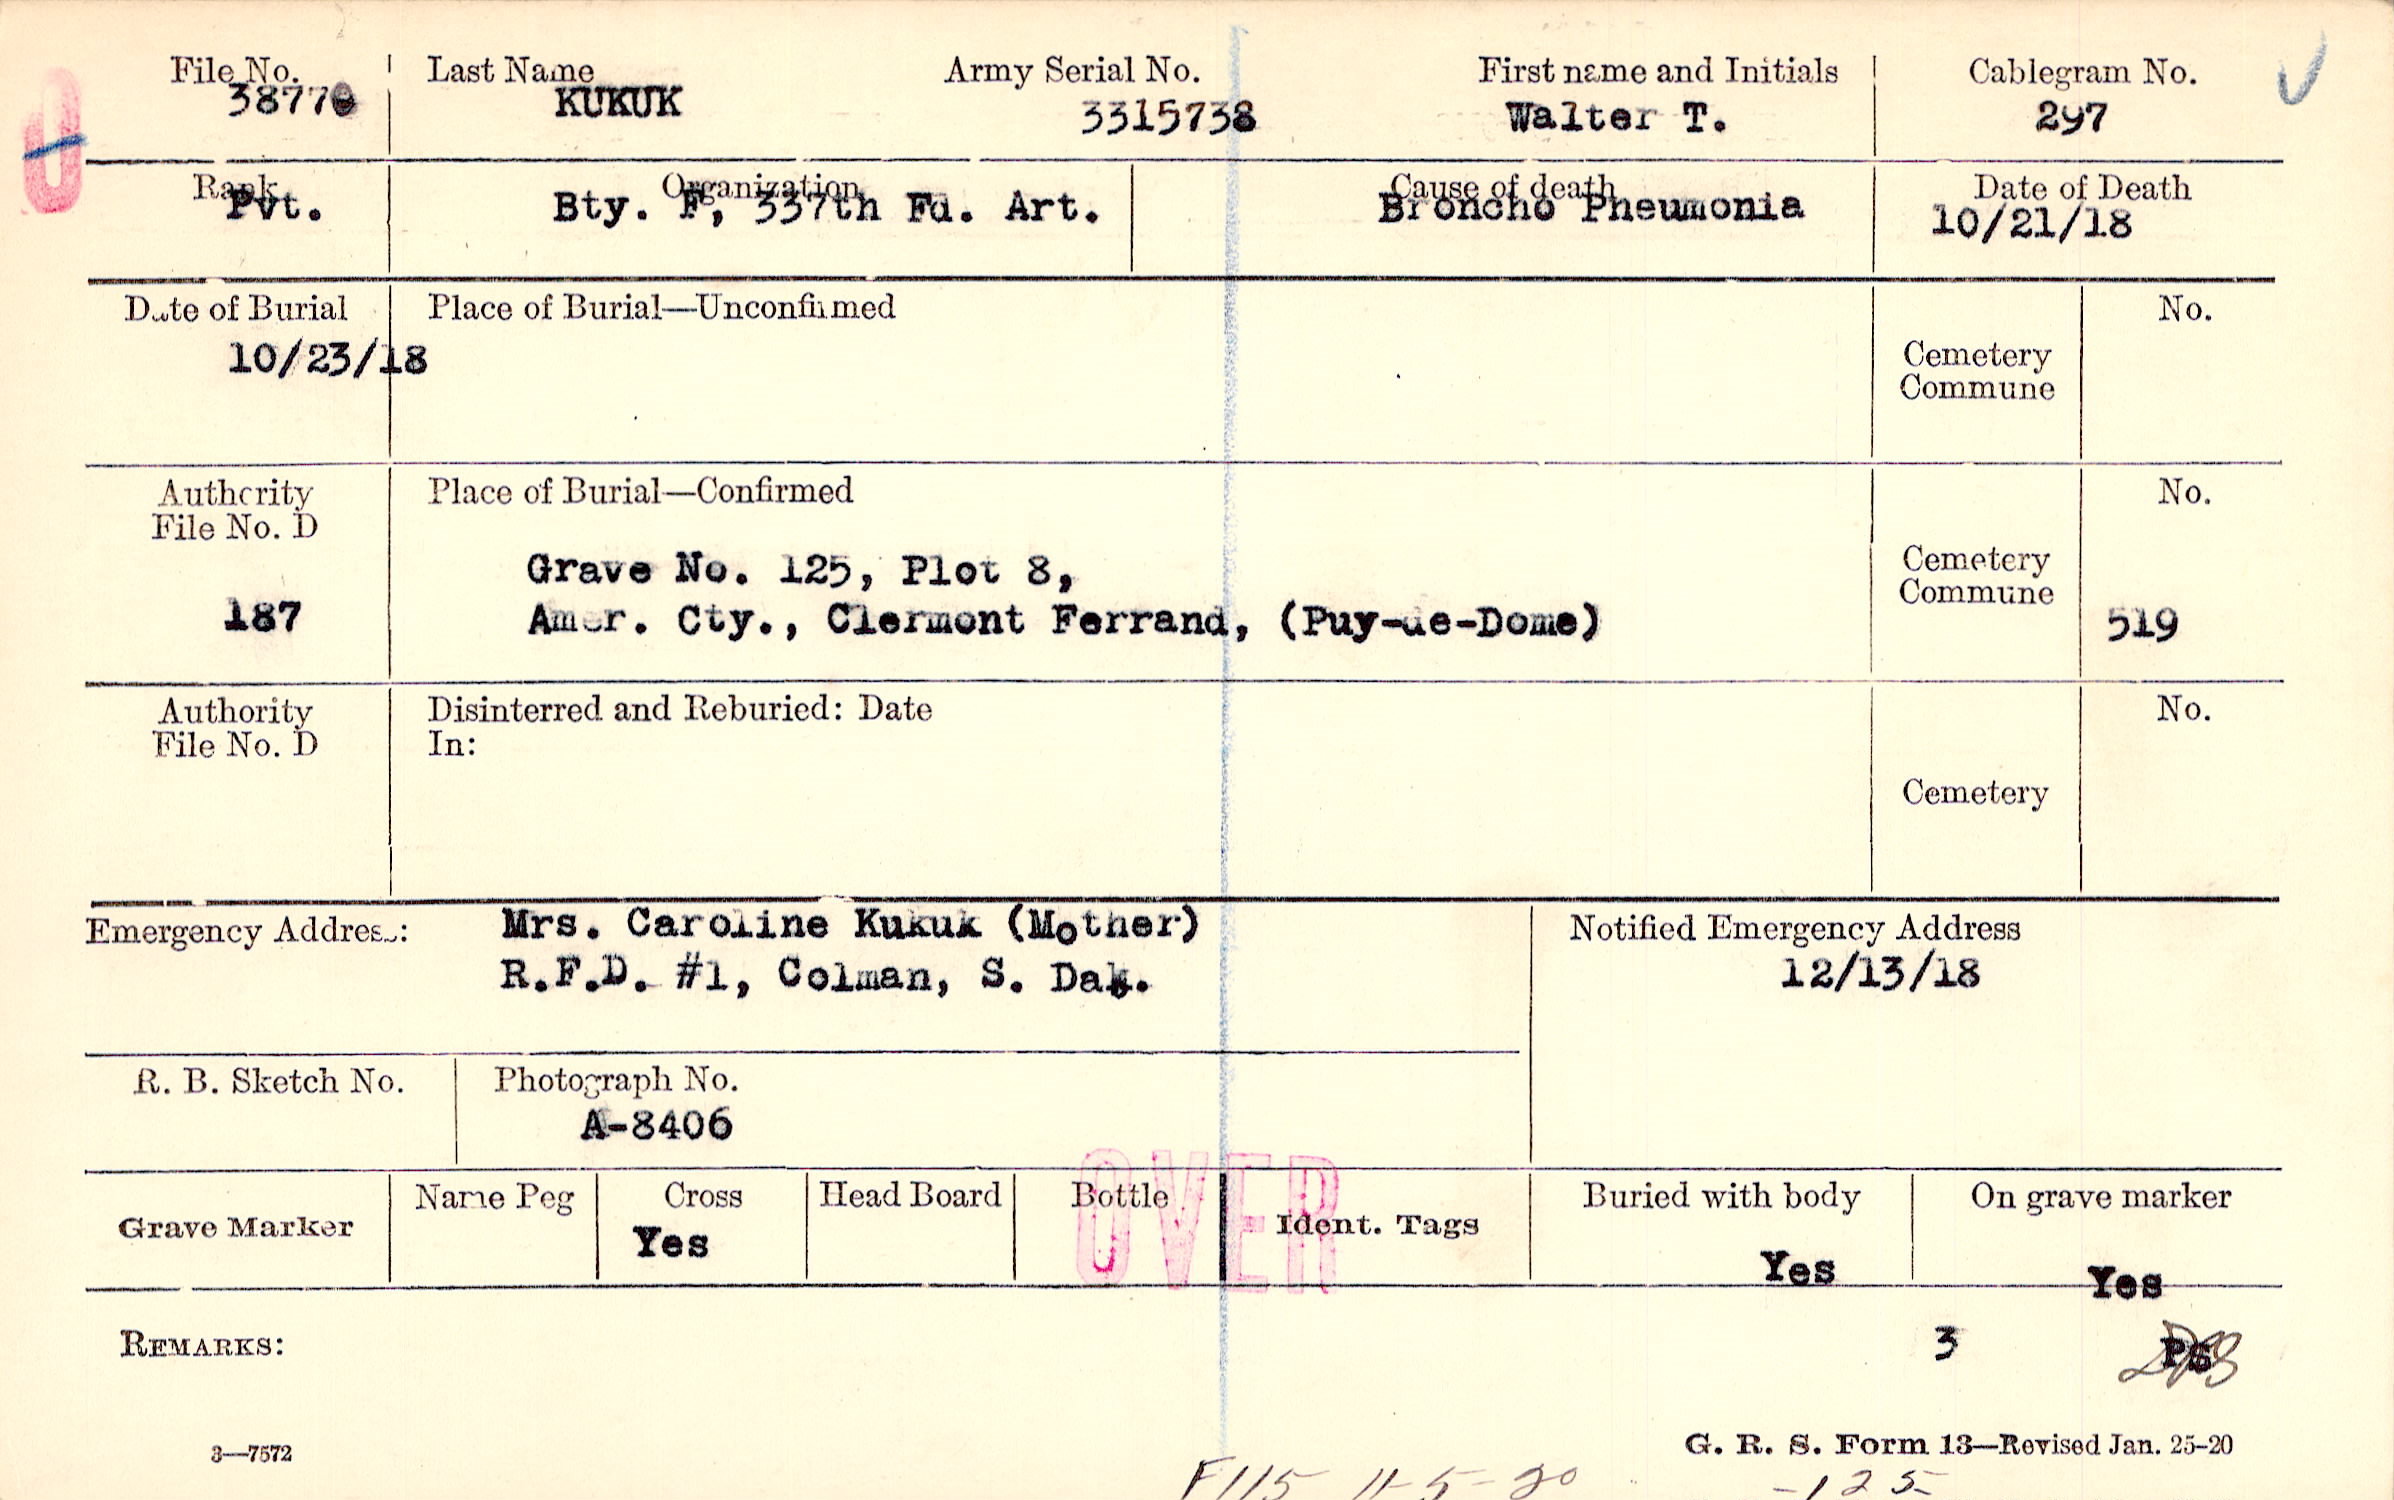 File No. Last Name Army Serial No. First name and Initials Cablegram No.
3877 KUKUK 3315738 Walter T. 297
Rank Organization Cause of death Date of Death
Pvt. Bty. F, 337th Fd. Art. Broncho Pneumonia 10/21/18
Date of Burial Place of Burial—Unconfirmed No.
10/23/18
Cemetery
Commune
Authority Place of Burial—Confirmed No.
File No. D
Grave No. 125, Plot 8, Cemetery
Commune
187 Amer. Cty., Clermont Ferrand, (Puy-de-Dome) 519
Authority Disinterred and Reburied: Date No.
File No. D In:
Cemetery
Emergency Address: Mrs. Caroline Kukuk (Mother) Notified Emergency Address
R.F.D. #1, Colman, S. Dak. 12/13/18
R. B. Sketch No. Photograph No.
A-8406
OVER
Grave Marker Name Peg Cross Head Board Bottle Ident. Tags Buried with body On grave marker
Yes Yes Yes
REMARKS: 3 PS
3—7572 G. R. S. Form 13—Revised Jan. 25-20
F115 11-5-20 -125